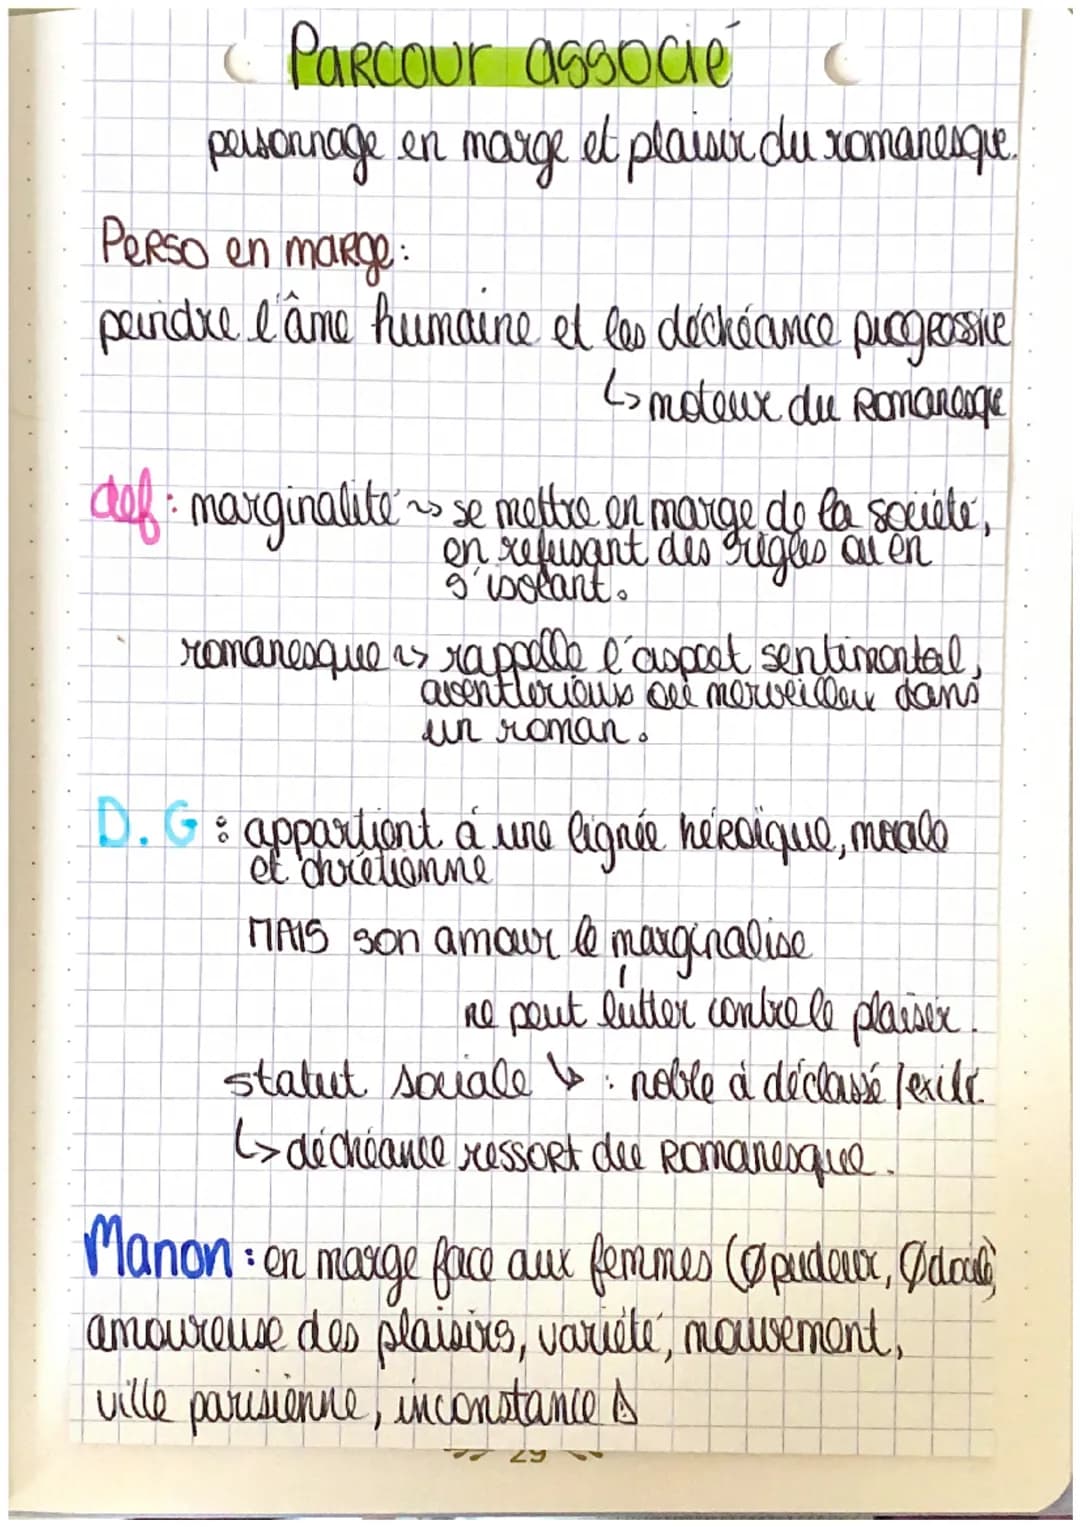 Parcour associé
personnage en marge et plaisir du romanesque.
Perso en marge :
peindre l'âme humaine et les déchéance progressive
↳ moteur du Romanesque
def : marginalité ~> se mettre en marge de la société,
en refusant des règles ou en
s'isolant.
romanesque ~> rappelle l'aspect sentimental,
aventurieux ou merveilleux dans
un roman.
D.G : appartient à une lignée héroïque, morale
et chrétienne
MAIS son amour le marginalise
ne peut lutter contre le plaisir.
statut sociale ↘ : noble à déclassé / exilé.
↳ déchéance ressort du Romanesque.
Manon : en marge face aux femmes (Ø pudeur, Ø docile)
amoureuse des plaisirs, variété, mouvement,
ville parisienne, inconstance
29